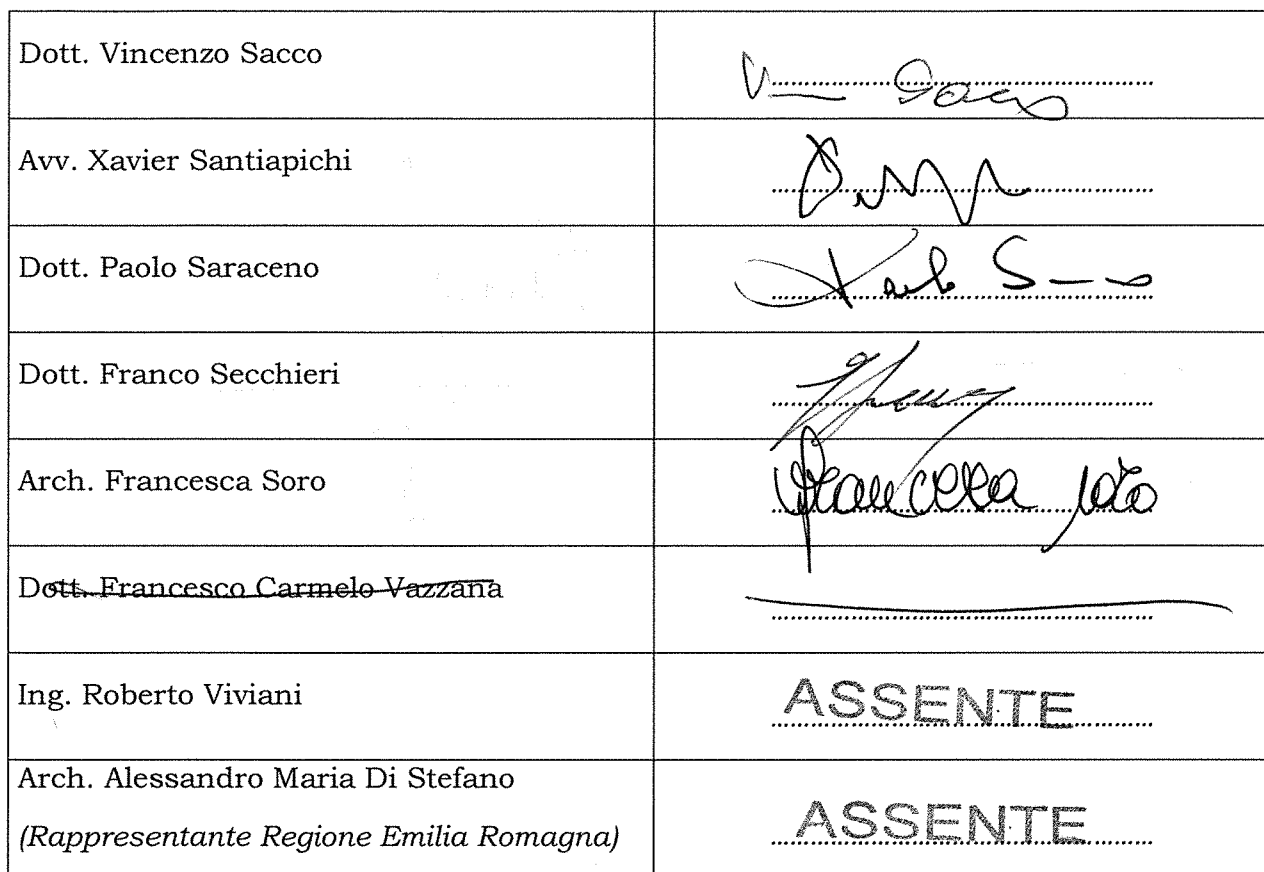 Dott. Vincenzo Sacco
Avv. Xavier Santiapichi
Dott. Paolo Saraceno
Paolo S
Dott. Franco Secchieri
Arch. Francesca Soro
Francesca Soro
Dott. Francesco Carmelo Vazzana
Ing. Roberto Viviani
ASSENTE
Arch. Alessandro Maria Di Stefano
(Rappresentante Regione Emilia Romagna)
ASSENTE